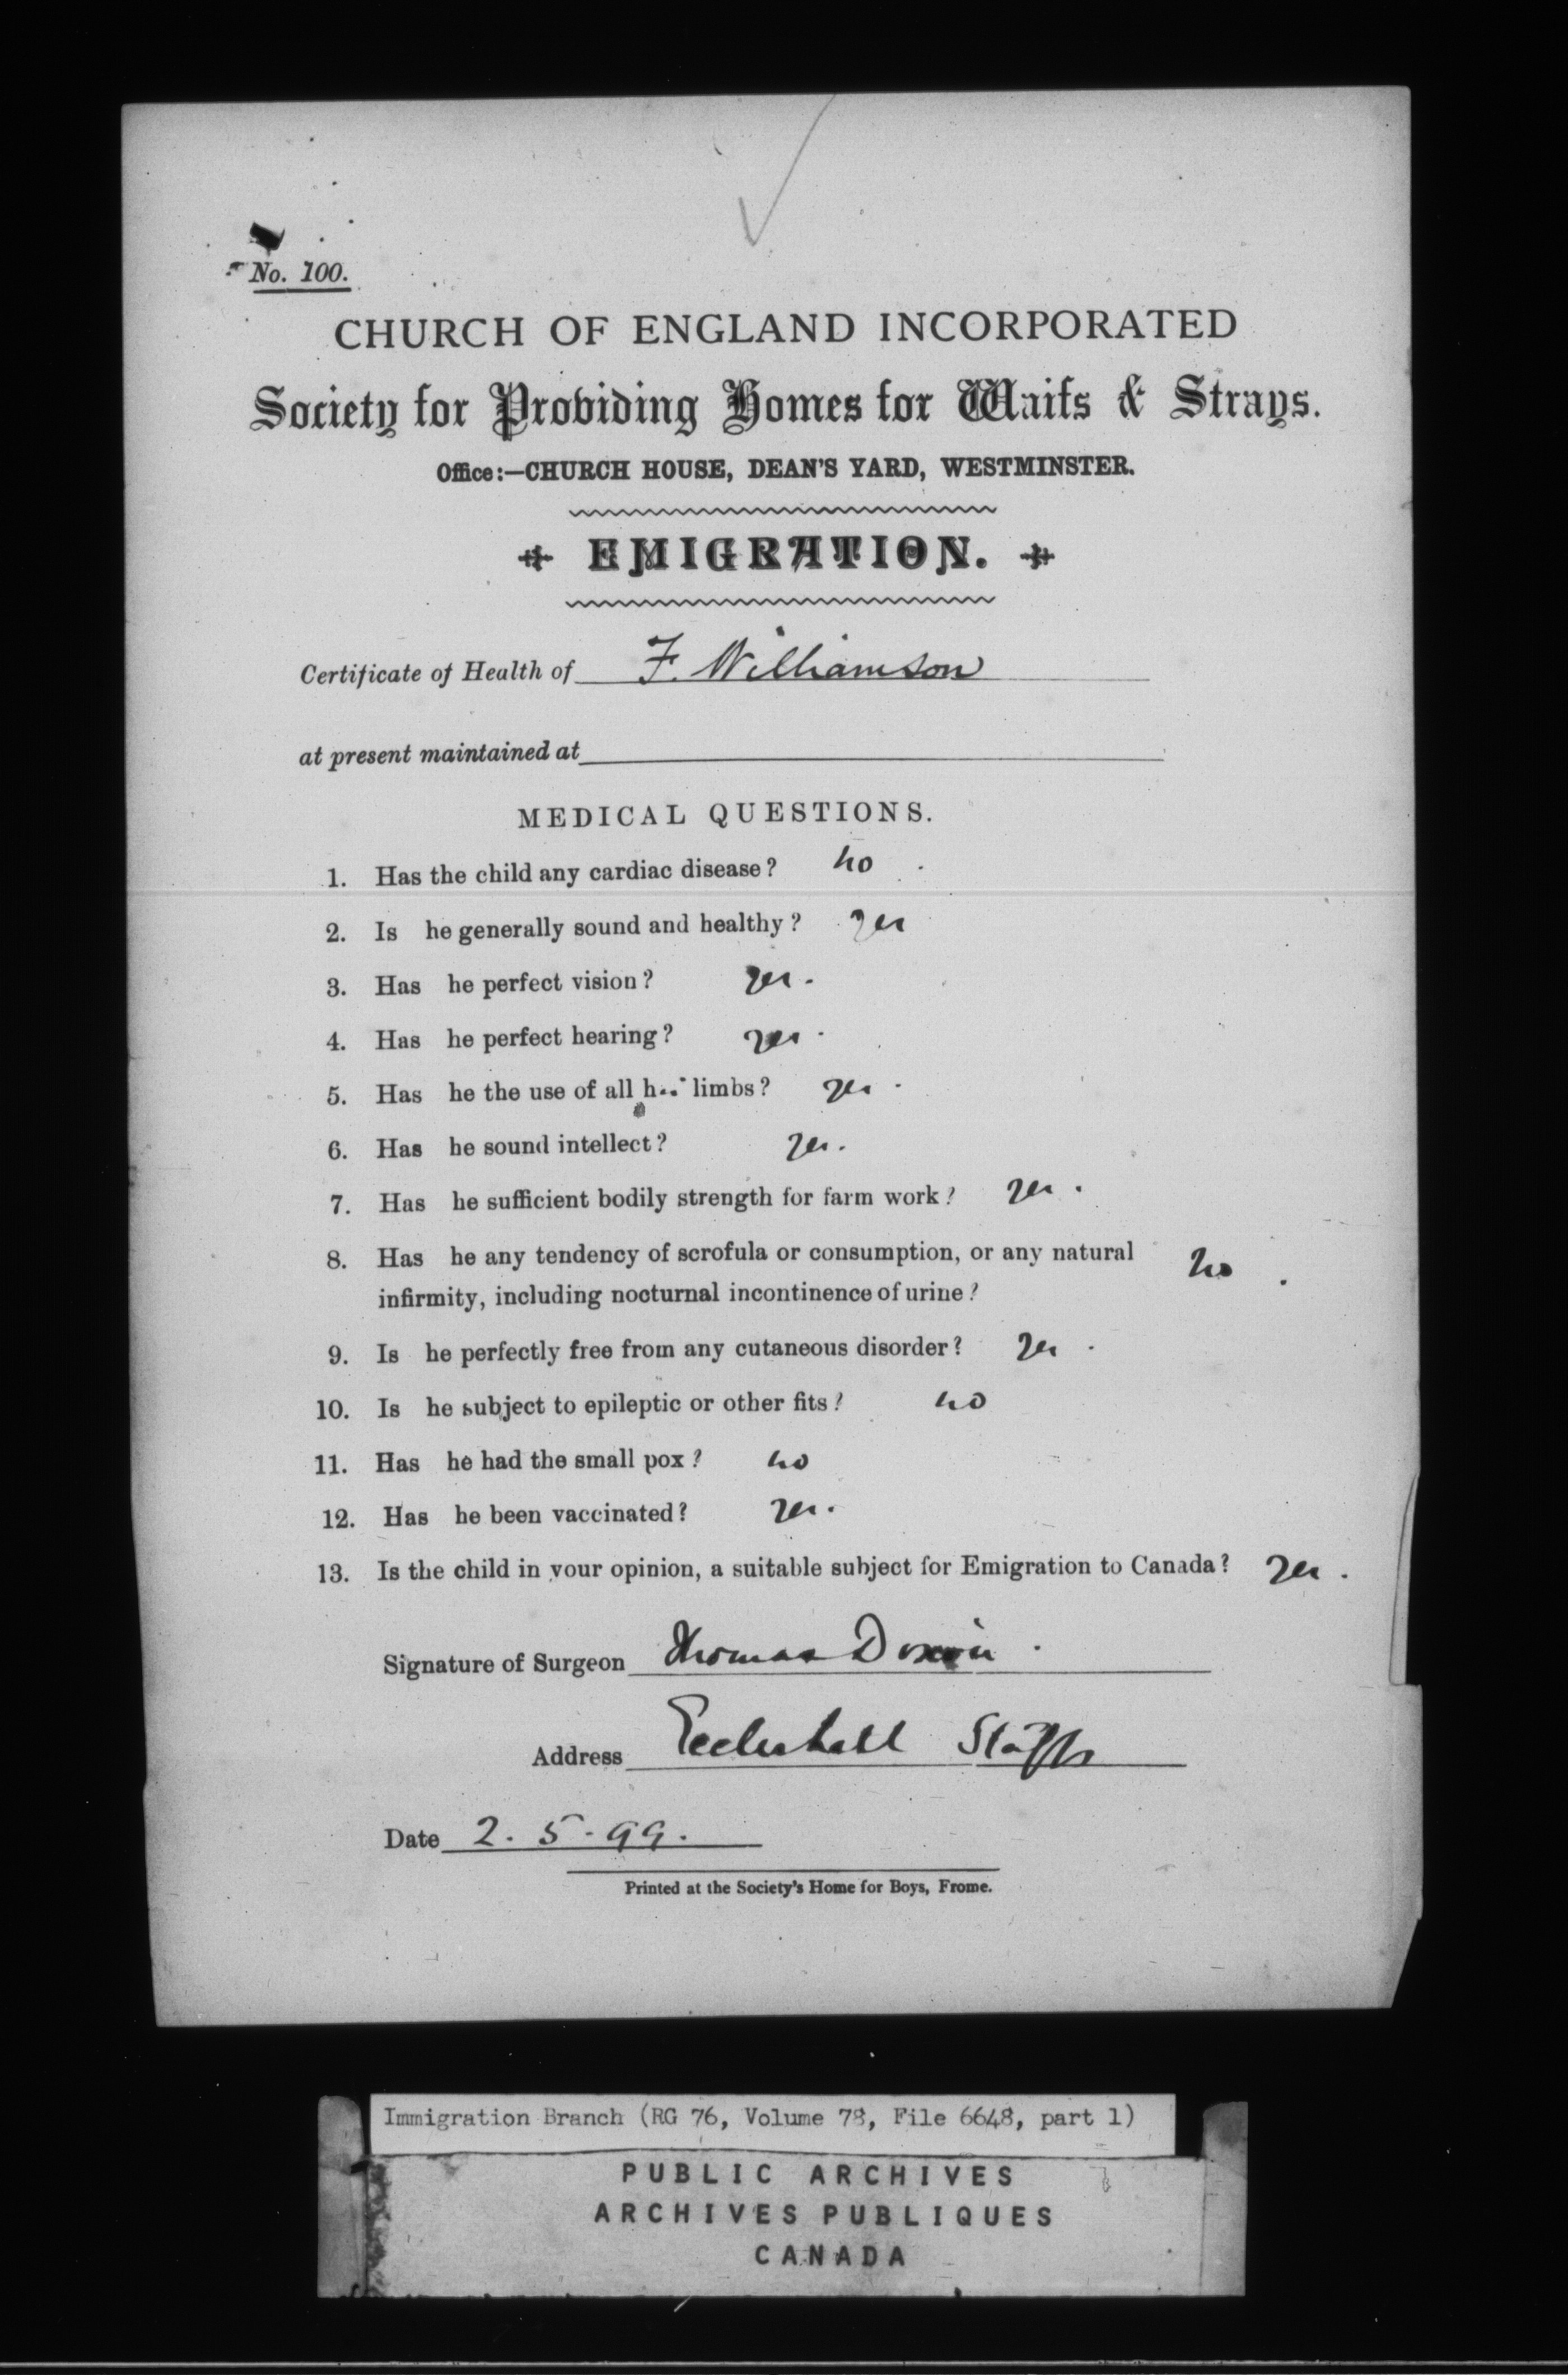 No. 100.
CHURCH OF ENGLAND INCORPORATED
Society for Providing Homes for Waifs & Strays.
Office:—CHURCH HOUSE, DEAN'S YARD, WESTMINSTER.
EMIGRATION.
Certificate of Health of F. Williamson
at present maintained at
MEDICAL QUESTIONS.
1. Has the child any cardiac disease? no .
2. Is he generally sound and healthy? yes
3. Has he perfect vision? yes.
4. Has he perfect hearing? yes.
5. Has he the use of all h... limbs? yes.
6. Has he sound intellect? yes.
7. Has he sufficient bodily strength for farm work? yes.
8. Has he any tendency of scrofula or consumption, or any natural no .
infirmity, including nocturnal incontinence of urine?
9. Is he perfectly free from any cutaneous disorder? yes .
10. Is he subject to epileptic or other fits? no
11. Has he had the small pox? no
12. Has he been vaccinated? yes.
13. Is the child in your opinion, a suitable subject for Emigration to Canada? yes .
Signature of Surgeon Thomas
Address Eccleshall Staffs
Date 2.5.99.
Printed at the Society's Home for Boys, Frome.
Immigration Branch (RG 76, Volume 78, File 6648, part 1)
PUBLIC ARCHIVES
ARCHIVES PUBLIQUES
CANADA